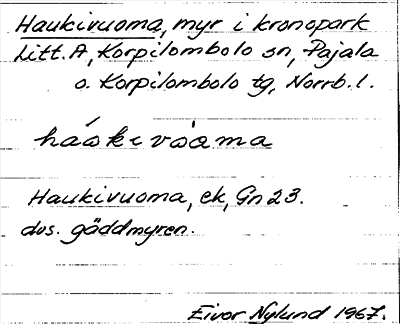 Haukivuoma, myr i kronopark
Litt. A, Korpilombolo sn, Pajala
o. Korpilombolo tg, Norrb. l.
háokevòama
Haukivuoma, ek, Gn 23.
dvs. gäddmyren.
Eivor Nylund 1967.